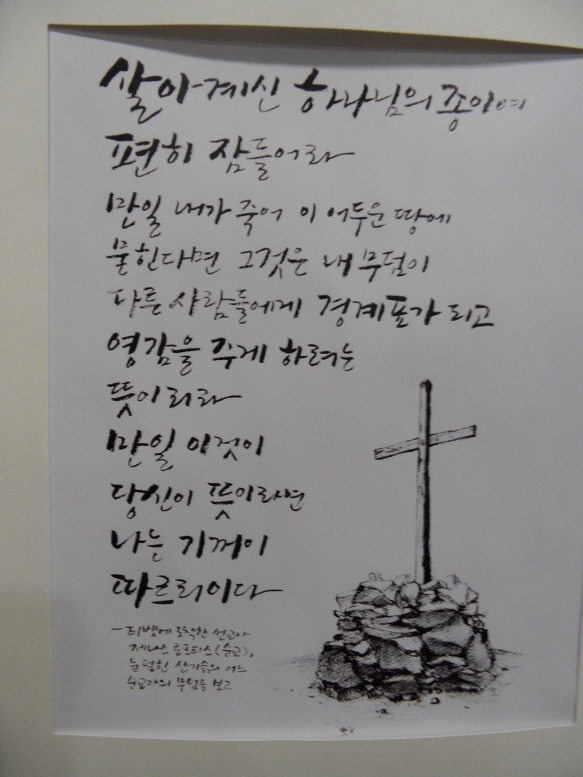 살아계신 하나님의 종이여
편히 잠들어라
만일 내가 죽어 이 어두운 땅에
묻힌다면 그것은 내 무덤이
다른 사람들에게 경계표가 되고
영감을 주게 하려는
뜻이리라
만일 이것이
당신이 뜻이라면
나는 기꺼이
따르리이다
- 티벳에 도착한 선교사
제나스 로프티스(순교),
눈 덮힌 산기슭의 어느
순교자의 무덤을 보고